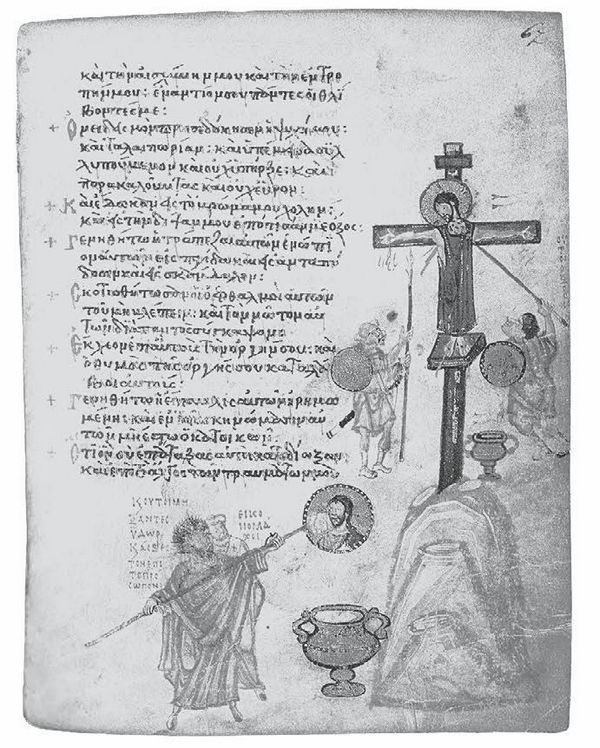 καὶ τὴν αἰσχύνην μου καὶ τὴν ἐντρο
πήν μου· ἐναντίον σου πάντες οἱ θλί
βοντές με·
Ὀνειδισμὸν προσεδόκησεν ἡ ψυχή μου·
καὶ ταλαιπωρίαν· καὶ ὑπέμεινα συλ
λυπούμενον καὶ οὐχ ὑπῆρξε· καὶ
παρακαλοῦντας καὶ οὐχ εὗρον·
Καὶ ἔδωκαν εἰς τὸ βρῶμά μου χολήν·
καὶ εἰς τὴν δίψαν μου ἐπότισάν με ὄξος:
Γενηθήτω ἡ τράπεζα αὐτῶν ἐνώπι
ον αὐτῶν εἰς παγίδα καὶ εἰς ἀνταπό
δοσιν καὶ εἰς σκάνδαλον·
Σκοτισθήτωσαν οἱ ὀφθαλμοὶ αὐτῶν
τοῦ μὴ βλέπειν· καὶ τὸν νῶτον αὐ
τῶν διὰ παντὸς σύγκαμψον·
Ἔκχεον ἐπ' αὐτοὺς τὴν ὀργήν σου· καὶ
ὁ θυμὸς τῆς ὀργῆς σου καταλά
βοι αὐτούς·
Γενηθήτω ἡ ἔπαυλις αὐτῶν ἠρημω
μένη· καὶ ἐν τοῖς σκηνώμασιν αὐ
τῶν μὴ ἔστω ὁ κατοικῶν·
Ὅτι ὃν σὺ ἐπάταξας αὐτοὶ κατεδίωξαν
καὶ ἐπὶ τὸ ἄλγος τῶν τραυμάτων μου
ΥΔΩΡ
ΕΙΚΟ
ΝΟΜΑ
ΧΟΙ
67